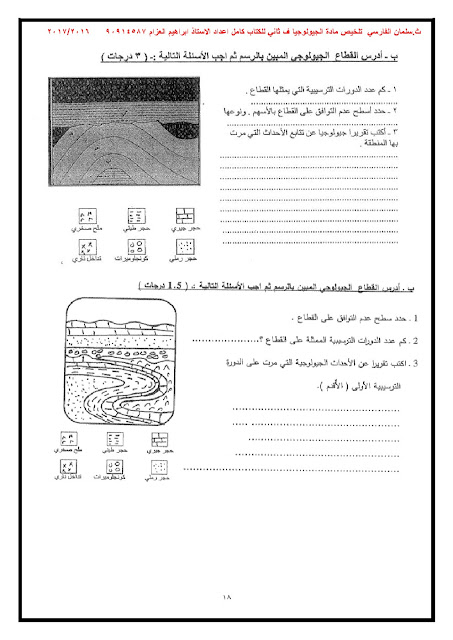 ث.سلمان الفارسي تلخيص مادة الجيولوجيا ف ثاني للكتاب كامل اعداد الاستاذ ابراهيم العزام ٩٠٩١٤٥٨٧ ٢٠١٧/٢٠١٦
ب - أدرس القطاع الجيولوجي المبين بالرسم ثم اجب الأسئلة التالية :- ( ٣ درجات )
١ - كم عدد الدورات الترسيبية التي يمثلها القطاع .
٢ - حدد أسطح عدم التوافق على القطاع بالأسهم . ونوعها
٣ - أكتب تقريرا جيولوجيا عن تتابع الأحداث التي مرت
بها المنطقة .
حجر جيري حجر طيني ملح صخري
حجر رملي كونجلوميرات تداخل ناري
ب . أدرس القطاع الجيولوجي المبين بالرسم ثم اجب الأسئلة التالية :- ( 1.5 درجات )
1 . حدد سطح عدم التوافق على القطاع .
2 . كم عدد الدورات الترسيبية الممثلة على القطاع ؟
3 . اكتب تقريرا عن الأحداث الجيولوجية التي مرت على الدورة
الترسيبية الأولى ( الأقدم ).
حجر جيري حجر طيني ملح صخري
حجر رملي كونجلوميرات تداخل ناري
١٨